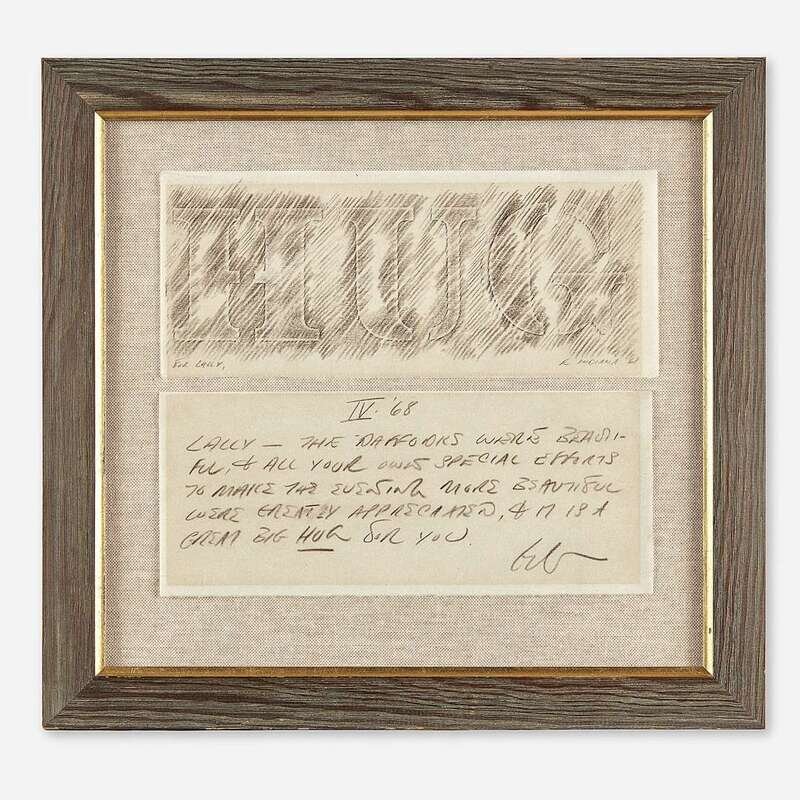 HUG
FOR LALLY,
R INDIANA
IV. '68
LALLY — THE DAFFODILS WERE BEAUTI-
FUL, & ALL YOUR OWN SPECIAL EFFORTS
TO MAKE THE EVENING MORE BEAUTIFUL
WERE GREATLY APPRECIATED, & IT IS A
GREAT BIG HUG FOR YOU.